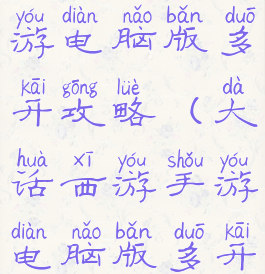 yóu diàn nǎo bǎn duō
游电脑版多
kāi gōng lüè dà
开攻略（大
huà xī yóu shǒu yóu
话西游手游
diàn nǎo bǎn duō kāi
电脑版多开